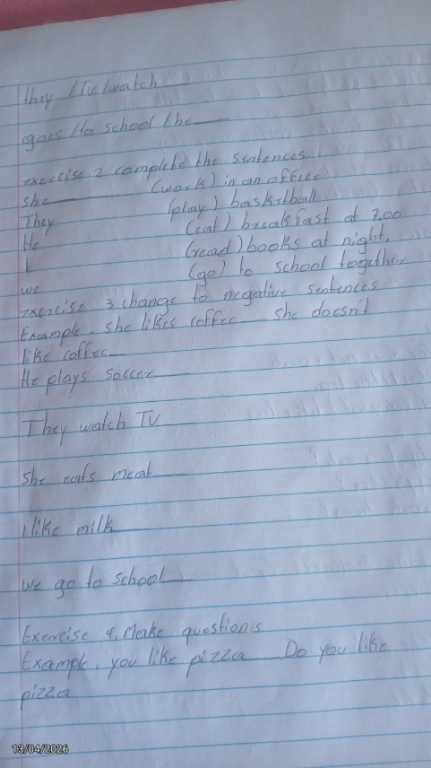 They /TV/watch
goes/to school/he
exercise 2 complete the sentences
she (work) in an office
They (play) basketball
He (eat) breakfast at 7,00
I (read) books at night.
we (go) to school together
exercise 3 change to negative sentences
Example. she likes coffee she doesn't
like coffee
He plays soccer
They watch TV
She eats meat
I like milk
we go to school
Exercise 4. Make questions
Example, you like pizza Do you like
pizza
13/04/2026